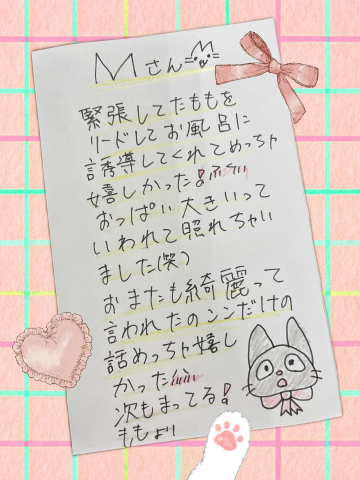 Mさん
緊張してたももを
リードしてお風呂に
誘導してくれてめっちゃ
嬉しかった
おっぱい大きいって
いわれて照れちゃい
ました(笑)
おまたも綺麗って
言われたのンンだけの
話めっちゃ嬉し
かった
次もまってる!
ももより